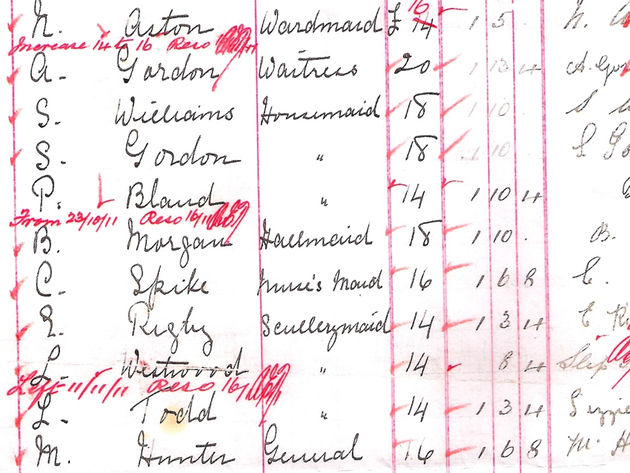 16
N. Aston Wardmaid £ 14 1 5 . N.
Increase 14 to 16 Reso 16/
A. Gordon Waitress 20 1 13 4 A. Gor
S. Williams Housemaid 18 1 10 . S
S. Gordon " 18 1 10 . S Go
P. Bland " 14 1 10 4
From 23/10/11 Reso 16/11
B. Morgan Hallmaid 18 1 10 . B.
C. Spike Nurse's Maid 16 1 6 8 C.
E. Rigby Scullerymaid 14 1 3 4 E Ri
L. Westwood " 14 8 4 Slip
Left 11/11/11 Reso 16/
L. Todd " 14 1 3 4 Lizzie
M. Hunter General 16 1 6 8 M. H